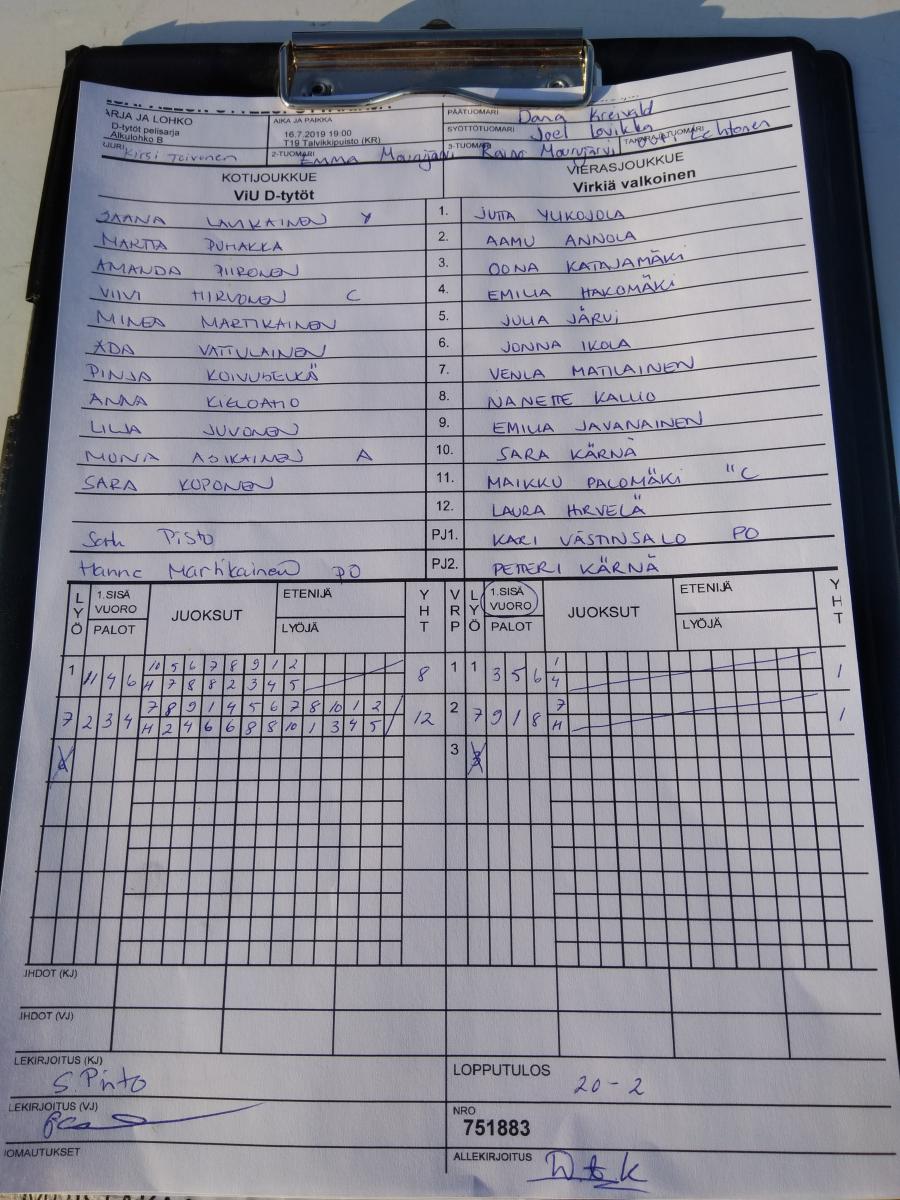 ARJA JA LOHKO
D-tytöt pelisarja
Alkulohko B
AIKA JA PAIKKA
16.7.2019 19:00
T19 Talvikkipuisto (KR)
PÄÄTUOMARI Dana Kreivald
SYÖTTÖTUOMARI Joel Lovikka
Kirsi Toivonen
2-TUOMARI Emma
3-TUOMARI
TAKARAJATUOMARI Lehtonen
KOTIJOUKKUE
ViU D-tytöt
VIERASJOUKKUE
Virkiä valkoinen
SAANA LAVIKAINEN 1. JUTTA YLIKOJOLA
MARTTA PUHAKKA 2. AAMU ANNOLA
AMANDA PIIRONEN 3. OONA KATAJAMÄKI
VIIVI HIRVONEN C 4. EMILIA HAKOMÄKI
MINEA MARTIKAINEN 5. JULIA JÄRVI
ADA VATTULAINEN 6. JONNA IKOLA
PINJA KOIVUSELKÄ 7. VENLA MATILAINEN
ANNA KIELOAHO 8. NANETTE KALLIO
LILJA JUVONEN 9. EMILIA JAVANAINEN
MONA ASIKAINEN A 10. SARA KÄRNÄ
SARA KOPONEN 11. MAIKKU PALOMÄKI "C
12. LAURA HIRVELÄ
Pisto PJ1. KARI VÄSTINSALO PO
Hanne Martikainen PO PJ2. PETTERI KÄRNÄ
LYÖ 1.SISÄ VUORO PALOT JUOKSUT ETENIJÄ LYÖJÄ YHT VRP LYÖ 1.SISÄ VUORO PALOT JUOKSUT ETENIJÄ LYÖJÄ YHT
1 11 4 6 10 5 6 7 8 9 1 2 8 1 1 3 5 6 1 1
H 7 8 8 2 3 4 5 4
7 2 3 4 7 8 9 1 4 5 6 7 8 10 1 2 12 2 7 9 1 8 7 1
H 2 4 6 6 8 8 10 1 3 4 5 H
3
IHDOT (KJ)
IHDOT (VJ)
LEKIRJOITUS (KJ) S. Pisto
LOPPUTULOS 20-2
LEKIRJOITUS (VJ)
NRO
751883
IOMAUTUKSET
ALLEKIRJOITUS